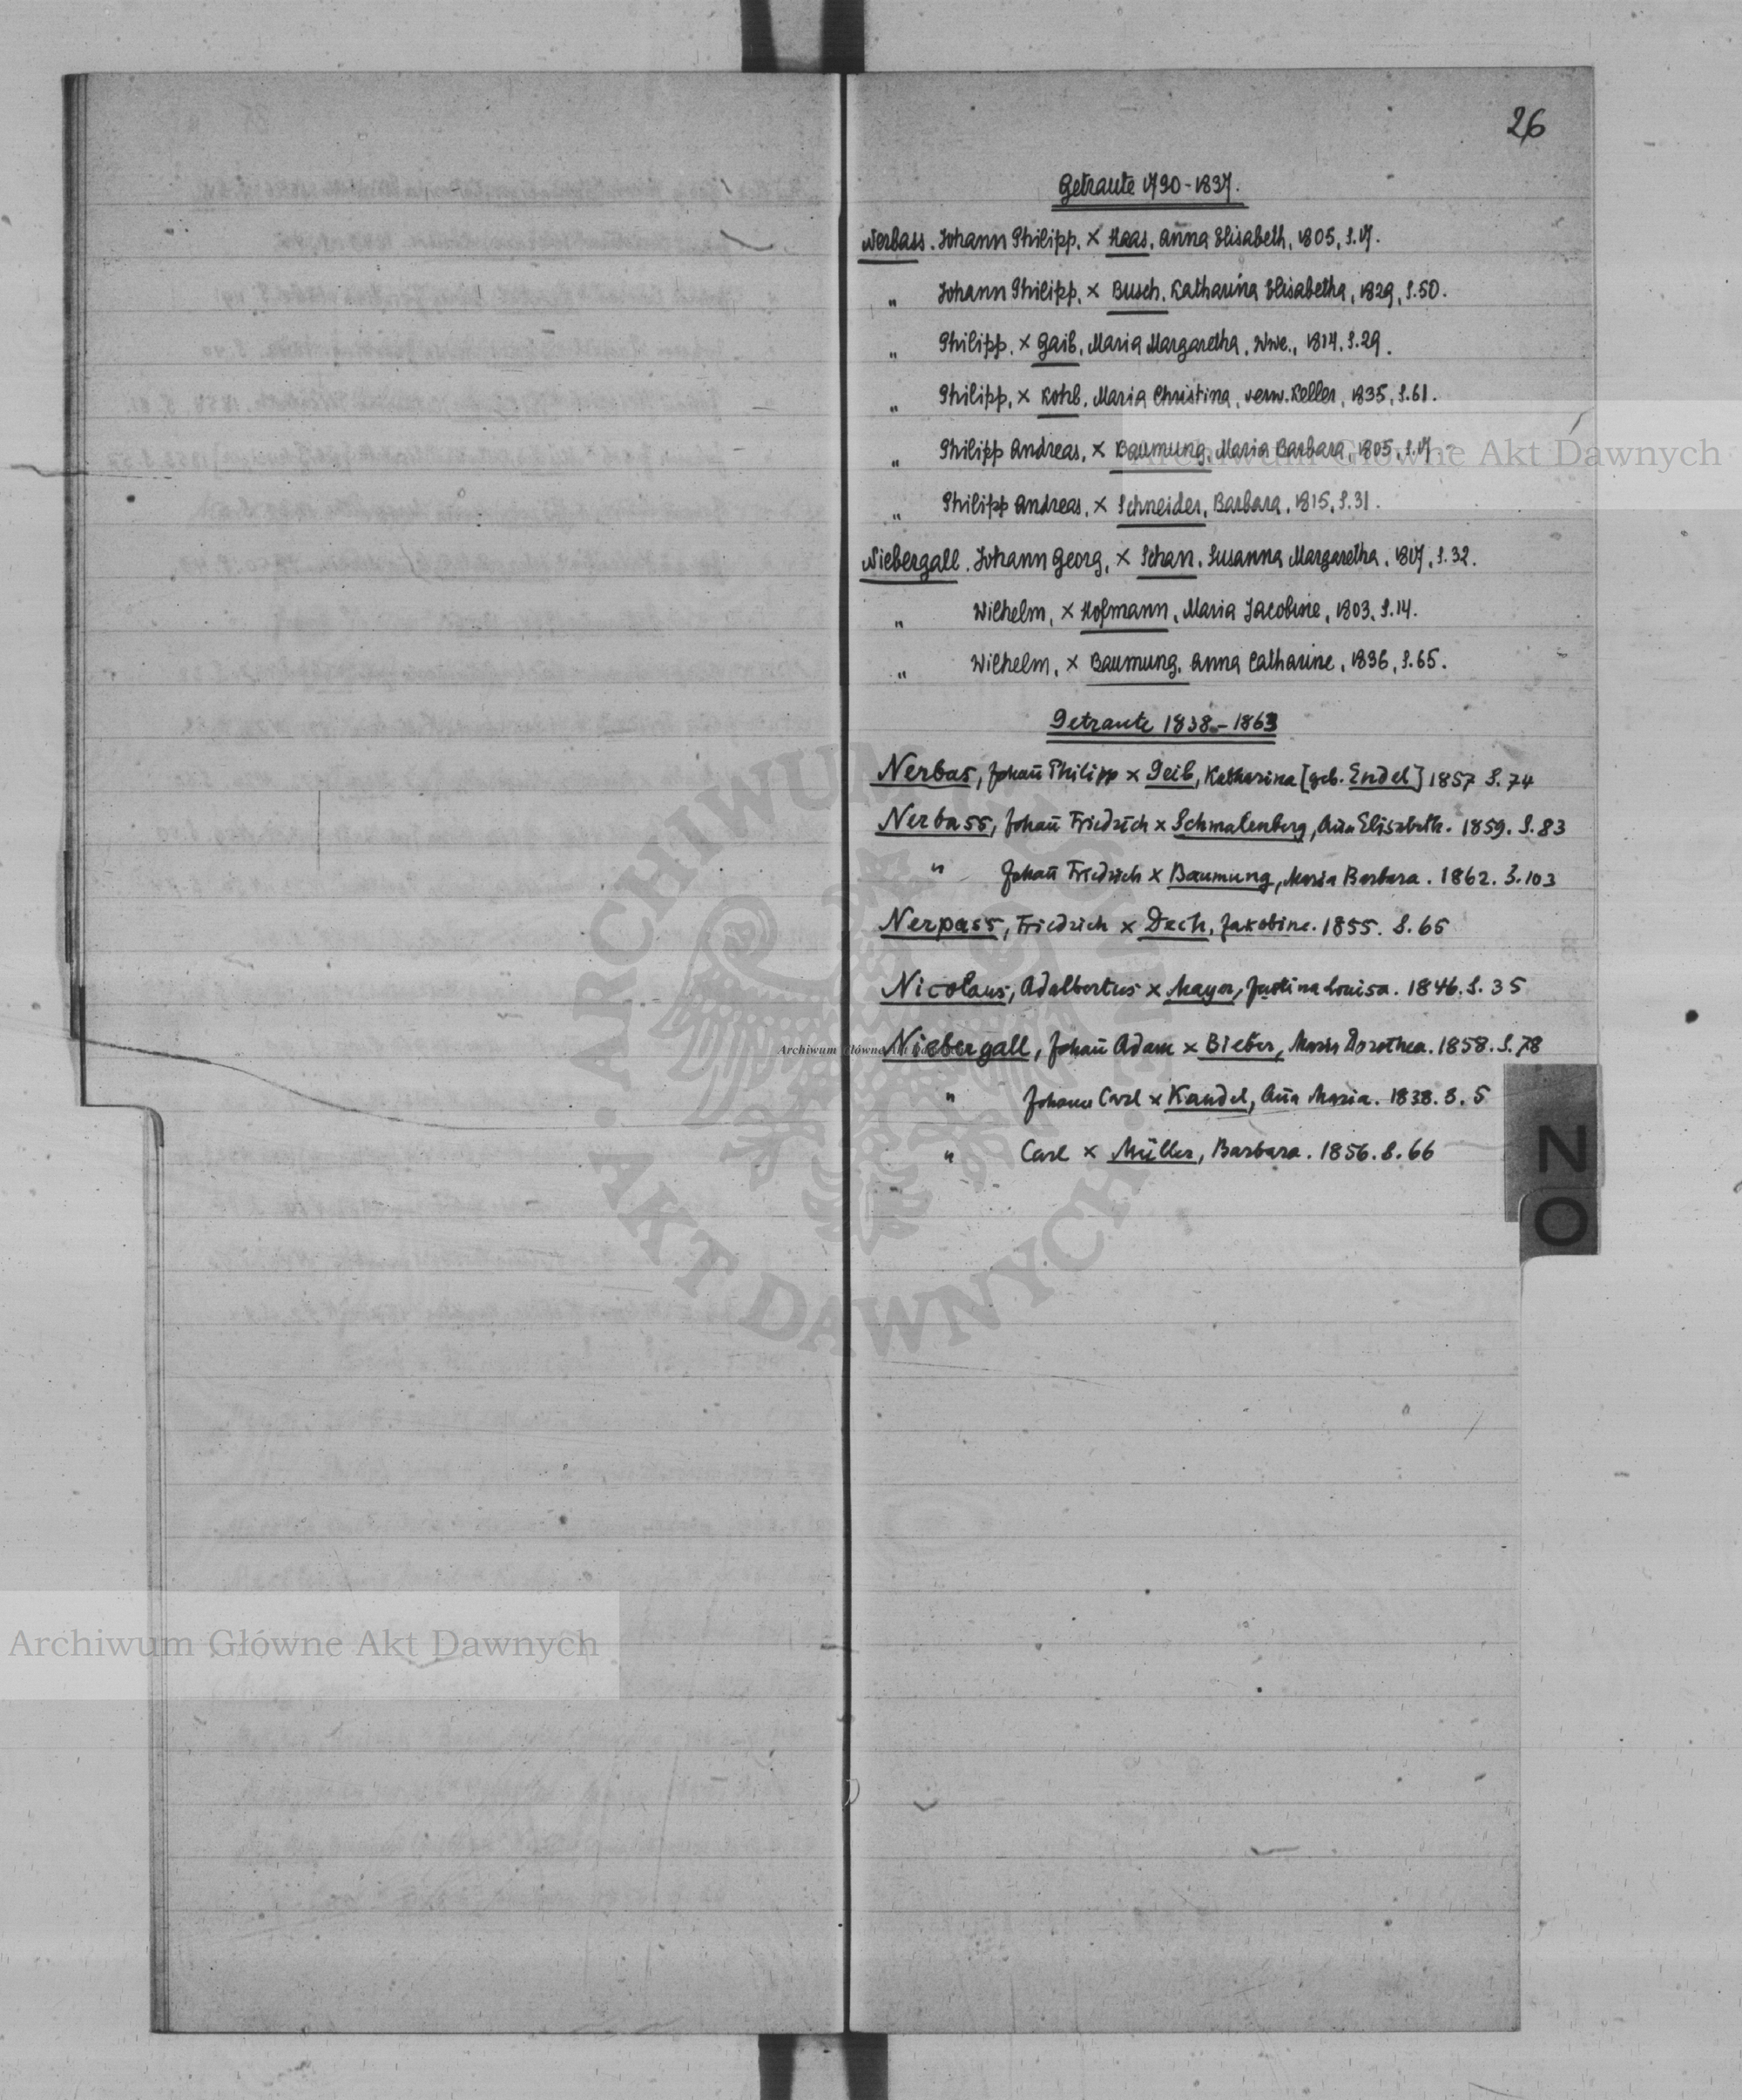 26
Getraute 1790-1837.
Nerbass. Johann Philipp, × Haas, Anna Elisabeth, 1805, S.17.
„ Johann Philipp, × Busch, Katharina Elisabetha, 1829, S.50.
„ Philipp, × Gaib, Maria Margaretha, Wwe., 1814, S.29.
„ Philipp, × Kohb, Maria Christina, verw. Keller, 1835, S.61.
„ Philipp Andreas, × Baumung, Maria Barbara, 1805, S.17
Archiwum Główne Akt Dawnych
„ Philipp Andreas, × Schneider, Barbara, 1815, S.31.
Niebergall. Johann Georg, × Schan, Susanna Margaretha, 1817, S.32.
„ Wilhelm, × Hofmann, Maria Jacobine, 1803, S.14.
„ Wilhelm, × Baumung, Anna Catharine, 1836, S.65.
Getraute 1838-1863
Nerbas, Johan̄ Philipp × Geib, Katharina [geb. Endel] 1857 S. 74
Nerbass, Johan̄ Friedrich × Schmalenberg, An̄a Elisabeth. 1859. S. 83
" Johan̄ Friedrich × Baumung, Maria Barbara. 1862. S. 103
Nerpass, Friedrich × Dech, Jakobine. 1855. S. 65
Nicolaus, Adalbertus × Mayer, Justina Louisa. 1846. S. 35
Niebergall, Johan̄ Adam × Bieber, Maria Dorothea. 1858. S. 78
Archiwum Główne Akt Dawnych
" Johann Carl × Kandel, An̄a Maria. 1838. S. 5
" Carl × Müller, Barbara. 1856. S. 66
N
O
ARCHIWUM GŁÓWNE
AKT DAWNYCH
Archiwum Główne Akt Dawnych